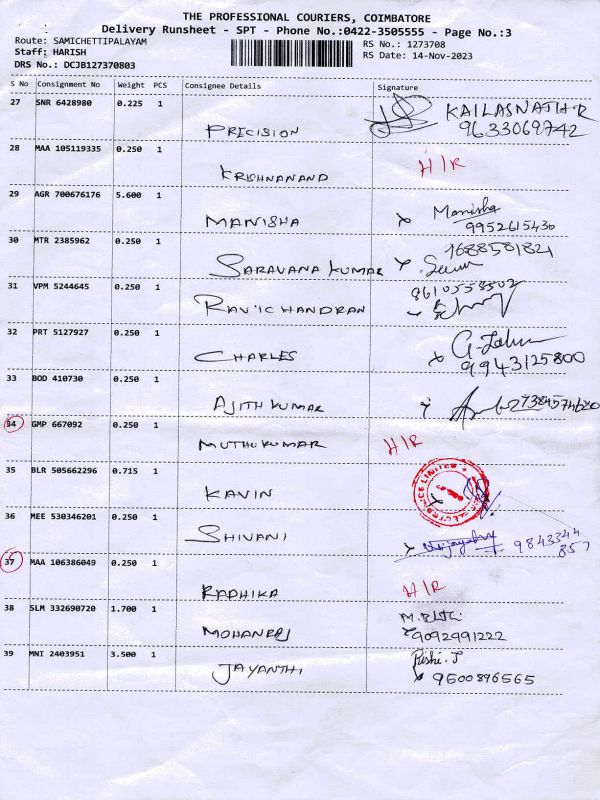 THE PROFESSIONAL COURIERS, COIMBATORE
Delivery Runsheet - SPT - Phone No.:0422-3505555 - Page No.:3
Route: SAMICHETTIPALAYAM
Staff: HARISH
DRS No.: DCJB127370803
RS No.: 1273708
RS Date: 14-Nov-2023
S No Consignment No Weight PCS Consignee Details Signature
27 SNR 6428980 0.225 1
PRECISION KAILASNATH R
9633069742
28 MAA 105119335 0.250 1
KRISHNANAND H/R
29 AGR 700676176 5.600 1
MANISHA Manisha
9952615430
30 MTR 2385962 0.250 1
SARAVANA KUMAR
31 VPM 5244645 0.250 1
RAVICHANDRAN
32 PRT 5127927 0.250 1
CHARLES
9943125800
33 BOD 410730 0.250 1
AJITH KUMAR
34 GMP 667092 0.250 1
MUTHUKUMAR H/R
35 BLR 505662296 0.715 1
KAVIN
36 MEE 530346201 0.250 1
SHIVANI 9843344
857
37 MAA 106386049 0.250 1
RADHIKA H/R
38 SLM 332690720 1.700 1
MOHANRAJ 9092991222
39 MNI 2403951 3.500 1
JAYANTHI Rishi. J
9500896565